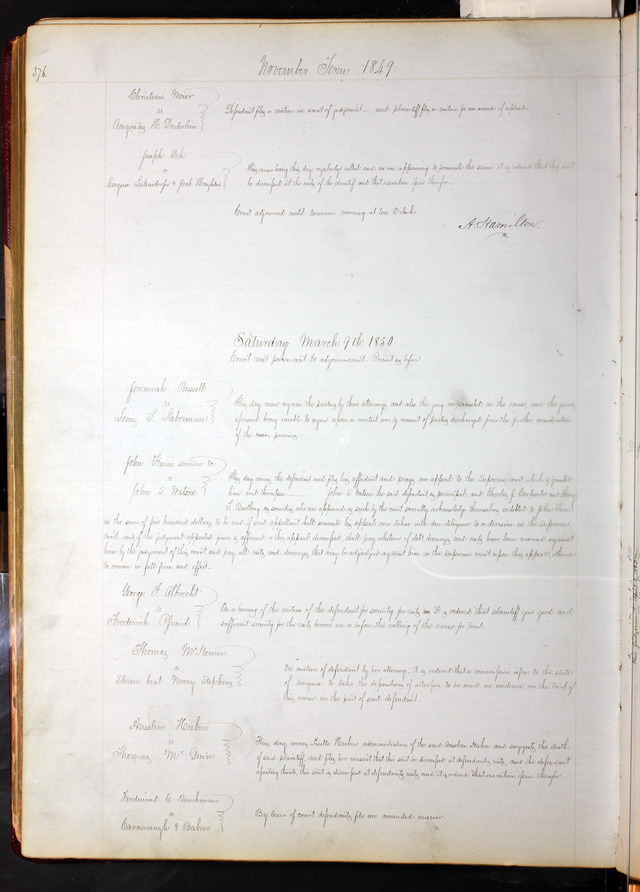 376
November Term 1849
Christian Meier
vs
Augustus H.
Defendant files a motion in arrest of judgment. and plaintiff files a motion for an award of
Joseph Ock
vs
Eugene Leitensdorfer & Joab Houghton
This cause being this day regularly called and no one appearing to prosecute the same it is ordered that this suit
be dismissed at the costs of the plaintiff and that execution issue therefor.
Court adjourned until tomorrow morning at ten O'clock
A. Hamilton.
Saturday March 9th 1850
Court met pursuant to adjournment. Present as before
Jeremiah Russell
vs
Louis A. Labeaume
This day come again the parties by their attorneys and also the jury empannelled in this cause, and the jurors
aforesaid being unable to agree upon a verdict are by consent of parties discharged from the further consideration
of the same
John
vs
John S. Watson
This day comes the defendant and files his affidavit and prays an appeal to the Supreme court which is granted
him and thereupon John S. Watson the said defendant as principal, and Charles J. Carpenter and
as securities who are approved as such by the court severally acknowledge themselves indebted to John
in the sum of five hundred dollars, to be void if said appellant shall prosecute his appeal now taken with due diligence to a decision in the Supreme
court, and if the judgment appealed from is affirmed or his appeal dismissed, shall pay whatever of debt damages and costs have been recovered against
him by the judgment of this court and pay all costs and damages that may be adjudged against him in the Supreme court upon this appeal, otherwise
to remain in full force and effect.
George F. Albrecht
vs
Frederick Pfund
On a hearing of the motion of the defendant for security for costs it is ordered that plaintiff give good and
sufficient security for the costs herein on or before the calling of the cause for trial.
Thomas
vs
Steam boat Mary Stephens
On motion of defendant by her attorney, it is ordered that a commission issue to the state
of to take the depositions of witnesses to be read in evidence on the trial of
this cause on the part of said defendant.
vs
Thomas McGuire
This day comes administratrix of the said and suggests the death
of said plaintiff, and files her consent that this suit be dismissed at defendants costs, and the defendant
this suit is dismissed at defendants costs, and it is ordered that execution issue therefor.
Ferdinand C.
vs
Cavanaugh &
By leave of court defendants file an amended answer